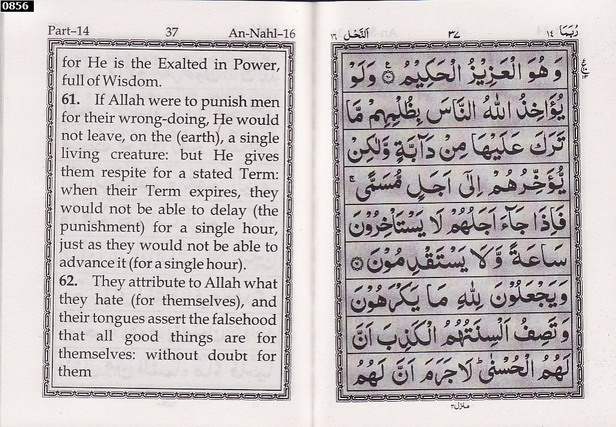 0856
Part–14 37 An-Nahl–16
for He is the Exalted in Power,
full of Wisdom.
61. If Allah were to punish men
for their wrong-doing, He would
not leave, on the (earth), a single
living creature: but He gives
them respite for a stated Term:
when their Term expires, they
would not be able to delay (the
punishment) for a single hour,
just as they would not be able to
advance it (for a single hour).
62. They attribute to Allah what
they hate (for themselves), and
their tongues assert the falsehood
that all good things are for
themselves: without doubt for
them
رُبَمَا ١٤ ٣٧ اَلنَّحْل ١٦
وَ هُوَ الْعَزِيْزُ الْحَكِيْمُ ۞ وَلَوْ
يُؤَاخِذُ اللّٰهُ النَّاسَ بِظُلْمِهِمْ مَّا
تَرَكَ عَلَيْهَا مِنْ دَآبَّةٍ وَّلٰكِنْ
يُّؤَخِّرُهُمْ اِلٰٓى اَجَلٍ مُّسَمًّى ۚ
فَاِذَا جَآءَ اَجَلُهُمْ لَا يَسْتَاْخِرُوْنَ
سَاعَةً وَّلَا يَسْتَقْدِمُوْنَ ۞
وَيَجْعَلُوْنَ لِلّٰهِ مَا يَكْرَهُوْنَ
وَتَصِفُ اَلْسِنَتُهُمُ الْكَذِبَ اَنَّ
لَهُمُ الْحُسْنٰى ؕ لَاجَرَمَ اَنَّ لَهُمُ